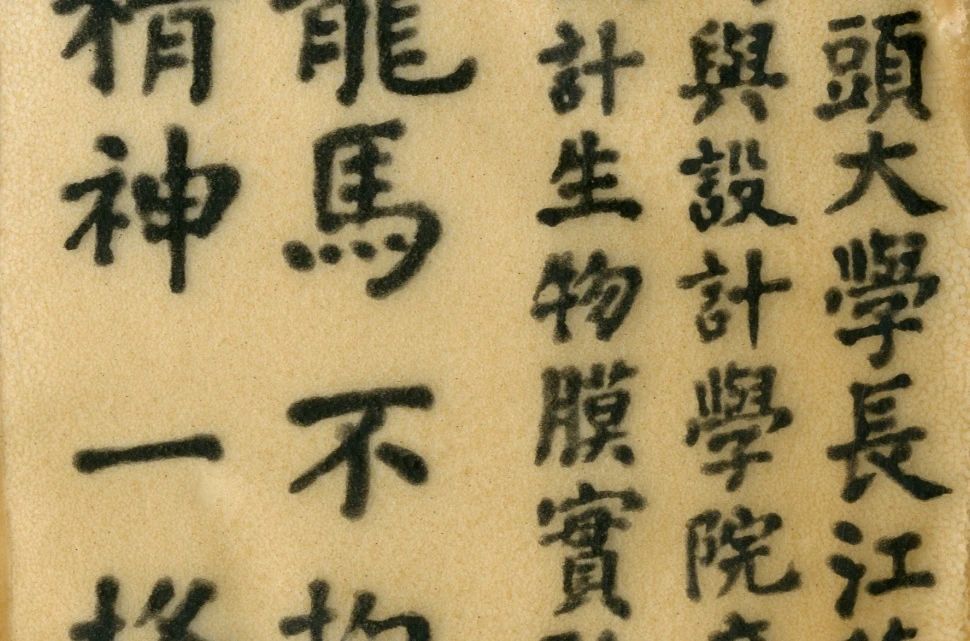 頭大學長江
與設計學院
計生物膜實
龍馬不拘
精神一格